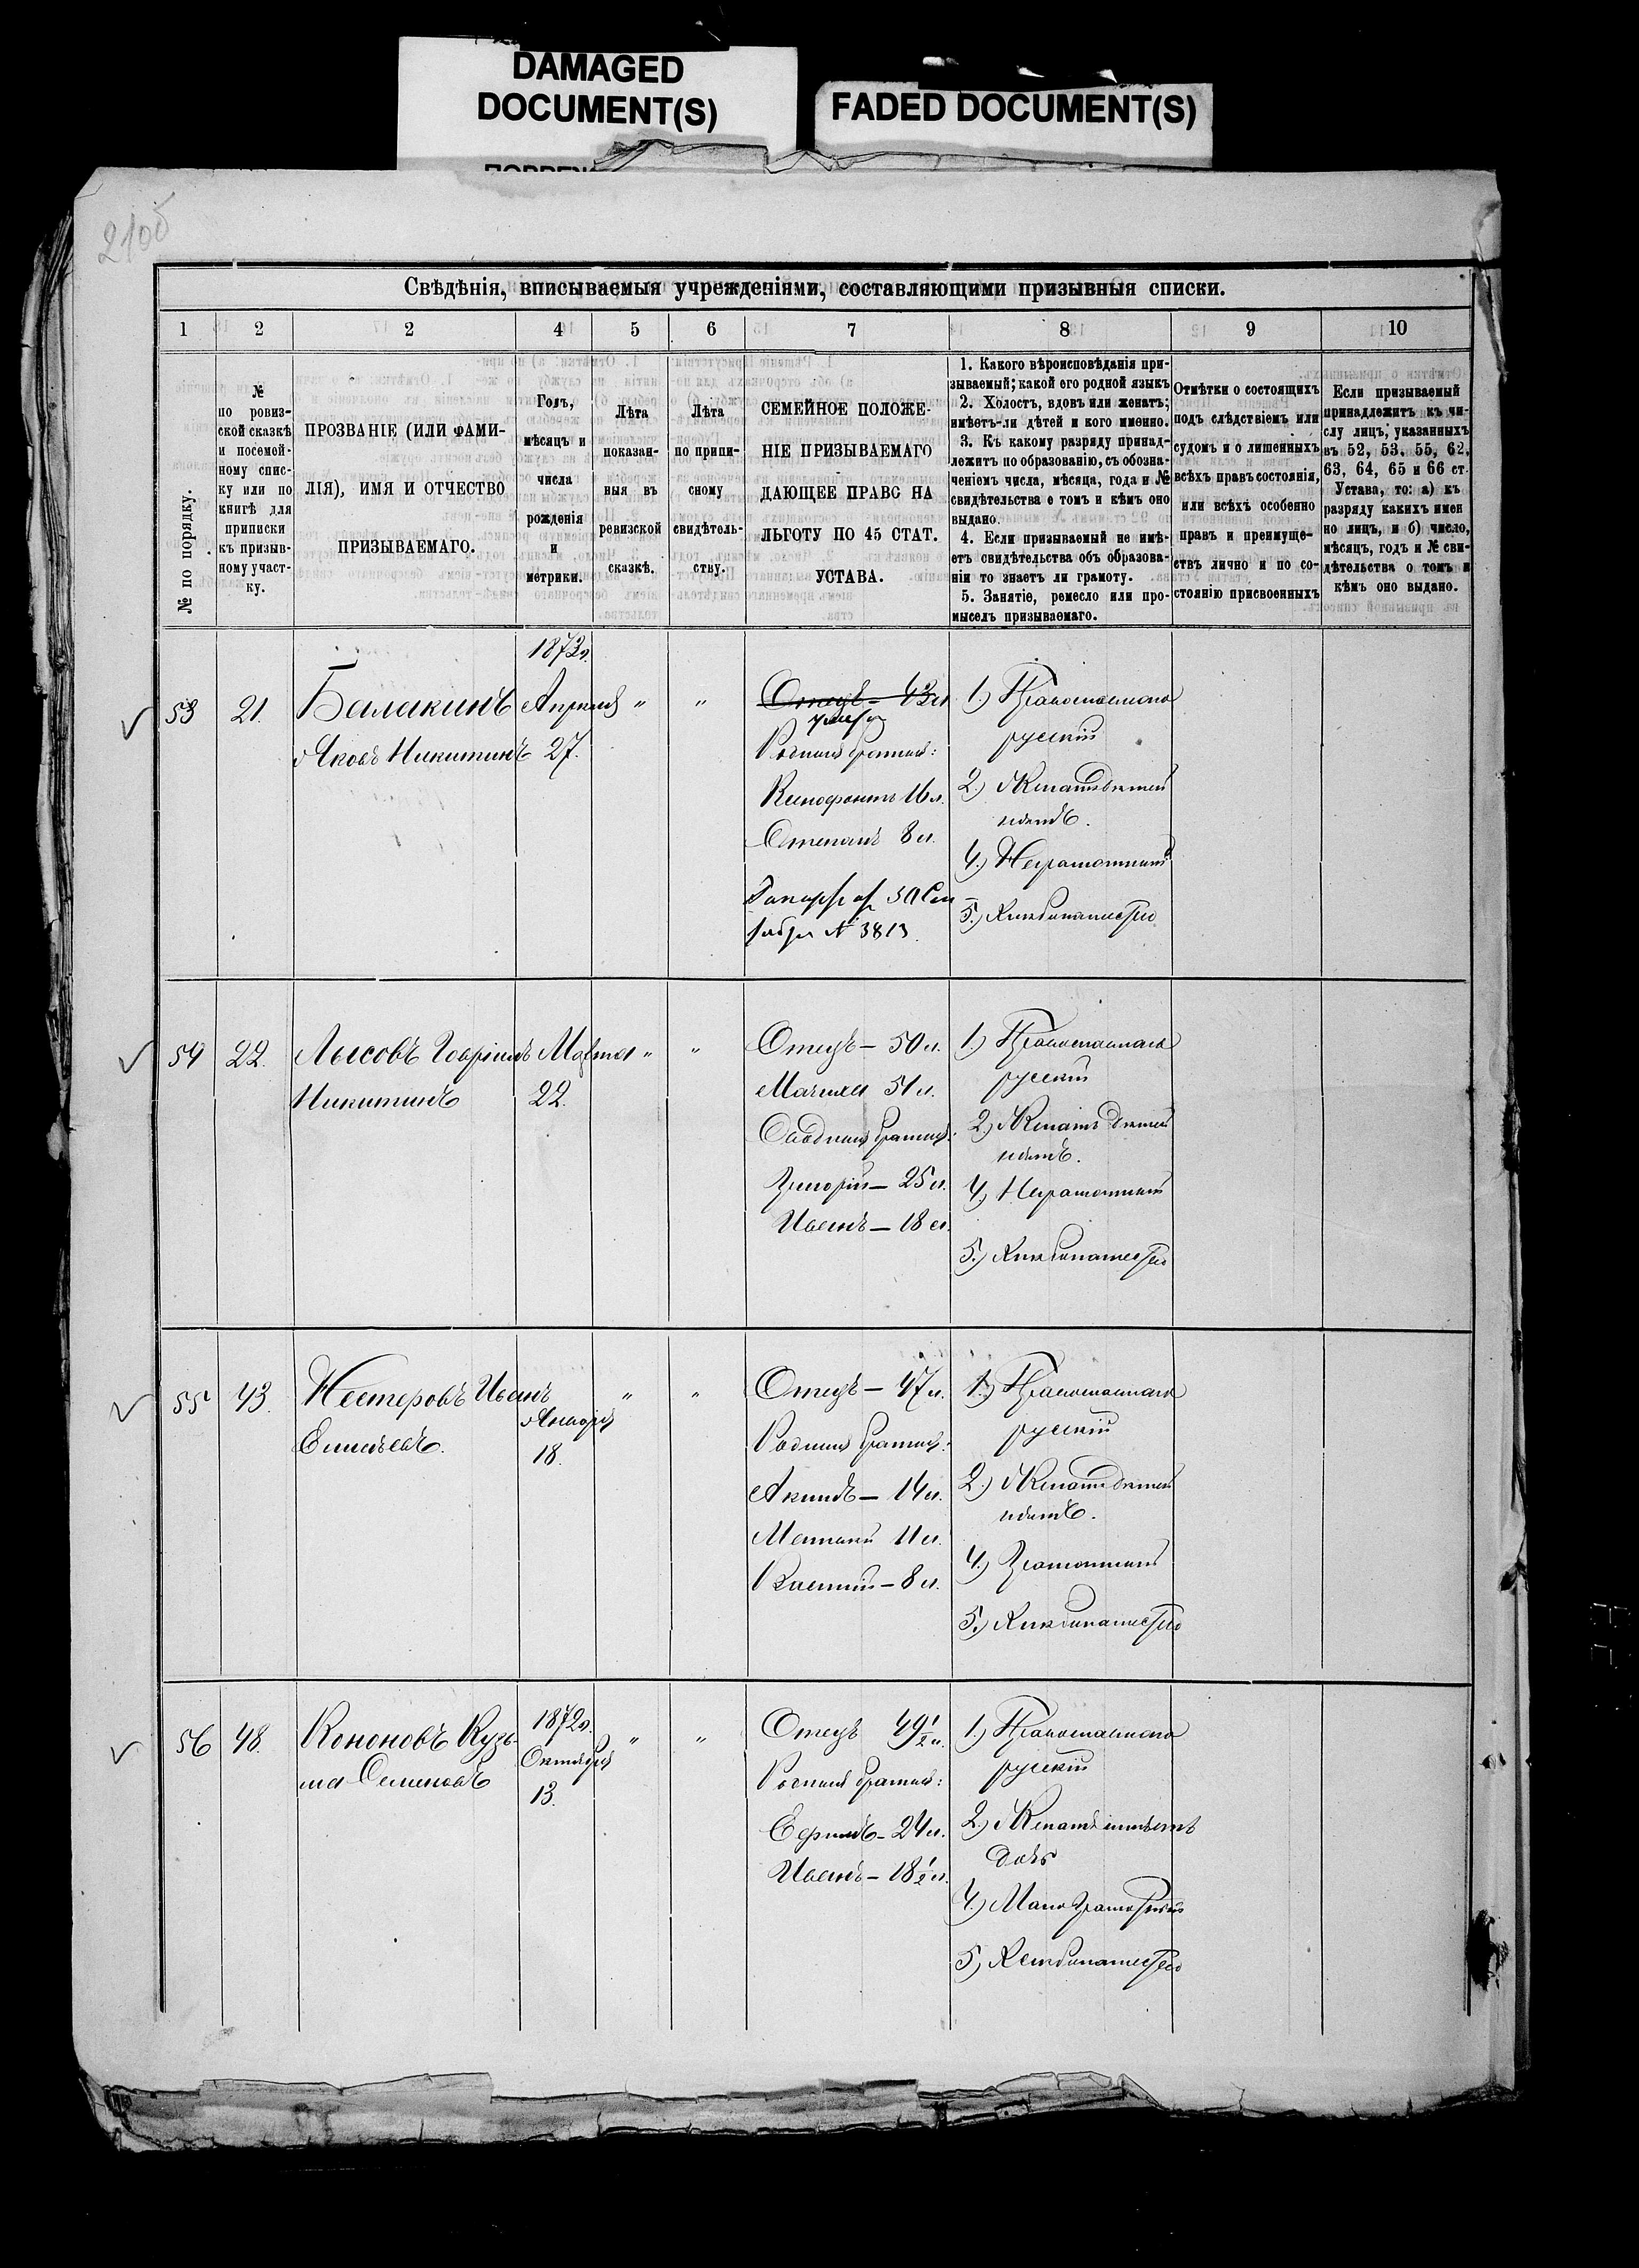 DAMAGED
DOCUMENT(S)
FADED DOCUMENT(S)
210б
Свѣдѣнія, вписываемыя учрежденіями, составляющими призывныя списки.
1 2 2 4 5 6 7 8 9 10
№ по порядку.
№
по ровиз-
ской сказкѣ
и посемей-
ному спис-
ку или по
книгѣ для
приписки
къ призыв-
ному участ-
ку.
ПРОЗВАНІЕ (ИЛИ ФАМИ-
ЛІЯ), ИМЯ И ОТЧЕСТВО
ПРИЗЫВАЕМАГО.
Годъ,
мѣсяцъ и
числа
рожденія
и
метрики.
Лѣта
показан-
ныя въ
ревизской
сказкѣ.
Лѣта
по припи-
сному
свидѣтель-
ству.
СЕМЕЙНОЕ ПОЛОЖЕ-
НІЕ ПРИЗЫВАЕМАГО
ДАЮЩЕЕ ПРАВО НА
ЛЬГОТУ ПО 45 СТАТ.
УСТАВА.
1. Какого вѣроисповѣданія при-
зываемый; какой его родной языкъ
2. Холостъ, вдовъ или женатъ;
имѣетъ-ли дѣтей и кого именно.
3. Къ какому разряду принад-
лежитъ по образованію, съ обозна-
ченіемъ числа, мѣсяца, года и №
свидѣтельства о томъ и кѣмъ оно
выдано.
4. Если призываемый не имѣ-
етъ свидѣтельства объ образова-
ніи то знаетъ ли грамоту.
5. Занятіе, ремесло или про-
мыселъ призываемаго.
Отмѣтки о состоящихъ
подъ слѣдствіемъ или
судомъ и о лишенныхъ
всѣхъ правъ состоянія,
или всѣхъ особенно
правъ и преимуще-
ствъ лично и по со-
стоянію присвоенныхъ
Если призываемый
принадлежитъ къ чи-
слу лицъ, указанныхъ
въ 52, 53, 55, 62,
63, 64, 65 и 66 ст.
Устава, то: а) къ
разряду какихъ имен
но лицъ, и б) число,
мѣсяцъ, годъ и № сви-
дѣтельства о томъ и
кѣмъ оно выдано.
53 21.
Балакинъ
Яковъ Никитинъ
1873г.
Апрѣля
27.
" "
Отецъ – 43л
умеръ
Родныя братья:
Ксенофонтъ 16 л.
Степанъ 8 л.
№ 3813.
1.) Православнаго
русскій
2.) Женатъ дѣтей
нѣтъ.
4.) Неграмотный
5.) Хлѣбопашество
54 22.
Лысовъ Гавріилъ
Никитинъ
Марта
22.
" "
Отецъ – 50 л.
Мачиха 51 л.
Сводныя братья:
Григорій – 25 л.
Иванъ – 18 л.
1.) Православнаго
русскій
2.) Женатъ дѣтей
нѣтъ.
4.) Неграмотный
5.) Хлѣбопашество
55 43.
Нестеровъ Иванъ
Елисѣевъ.
Января
18.
" "
Отецъ – 47 л.
Родныя братья:
Акимъ – 14 л.
11 л.
8 л.
1.) Православнаго
русскій
2.) Женатъ дѣтей
нѣтъ.
4.) Грамотный
5.) Хлѣбопашество
56 48.
Кононовъ Кузь-
ма Семеновъ
1872г.
Октября
13.
" "
Отецъ 49 1/2 л.
Родныя братья:
Ефимъ – 24 л.
Иванъ – 18 1/2 л.
1.) Православнаго
русскій
2.) Женатъ имѣетъ
дочь
4.) Мало грамотный
5.) Хлѣбопашество